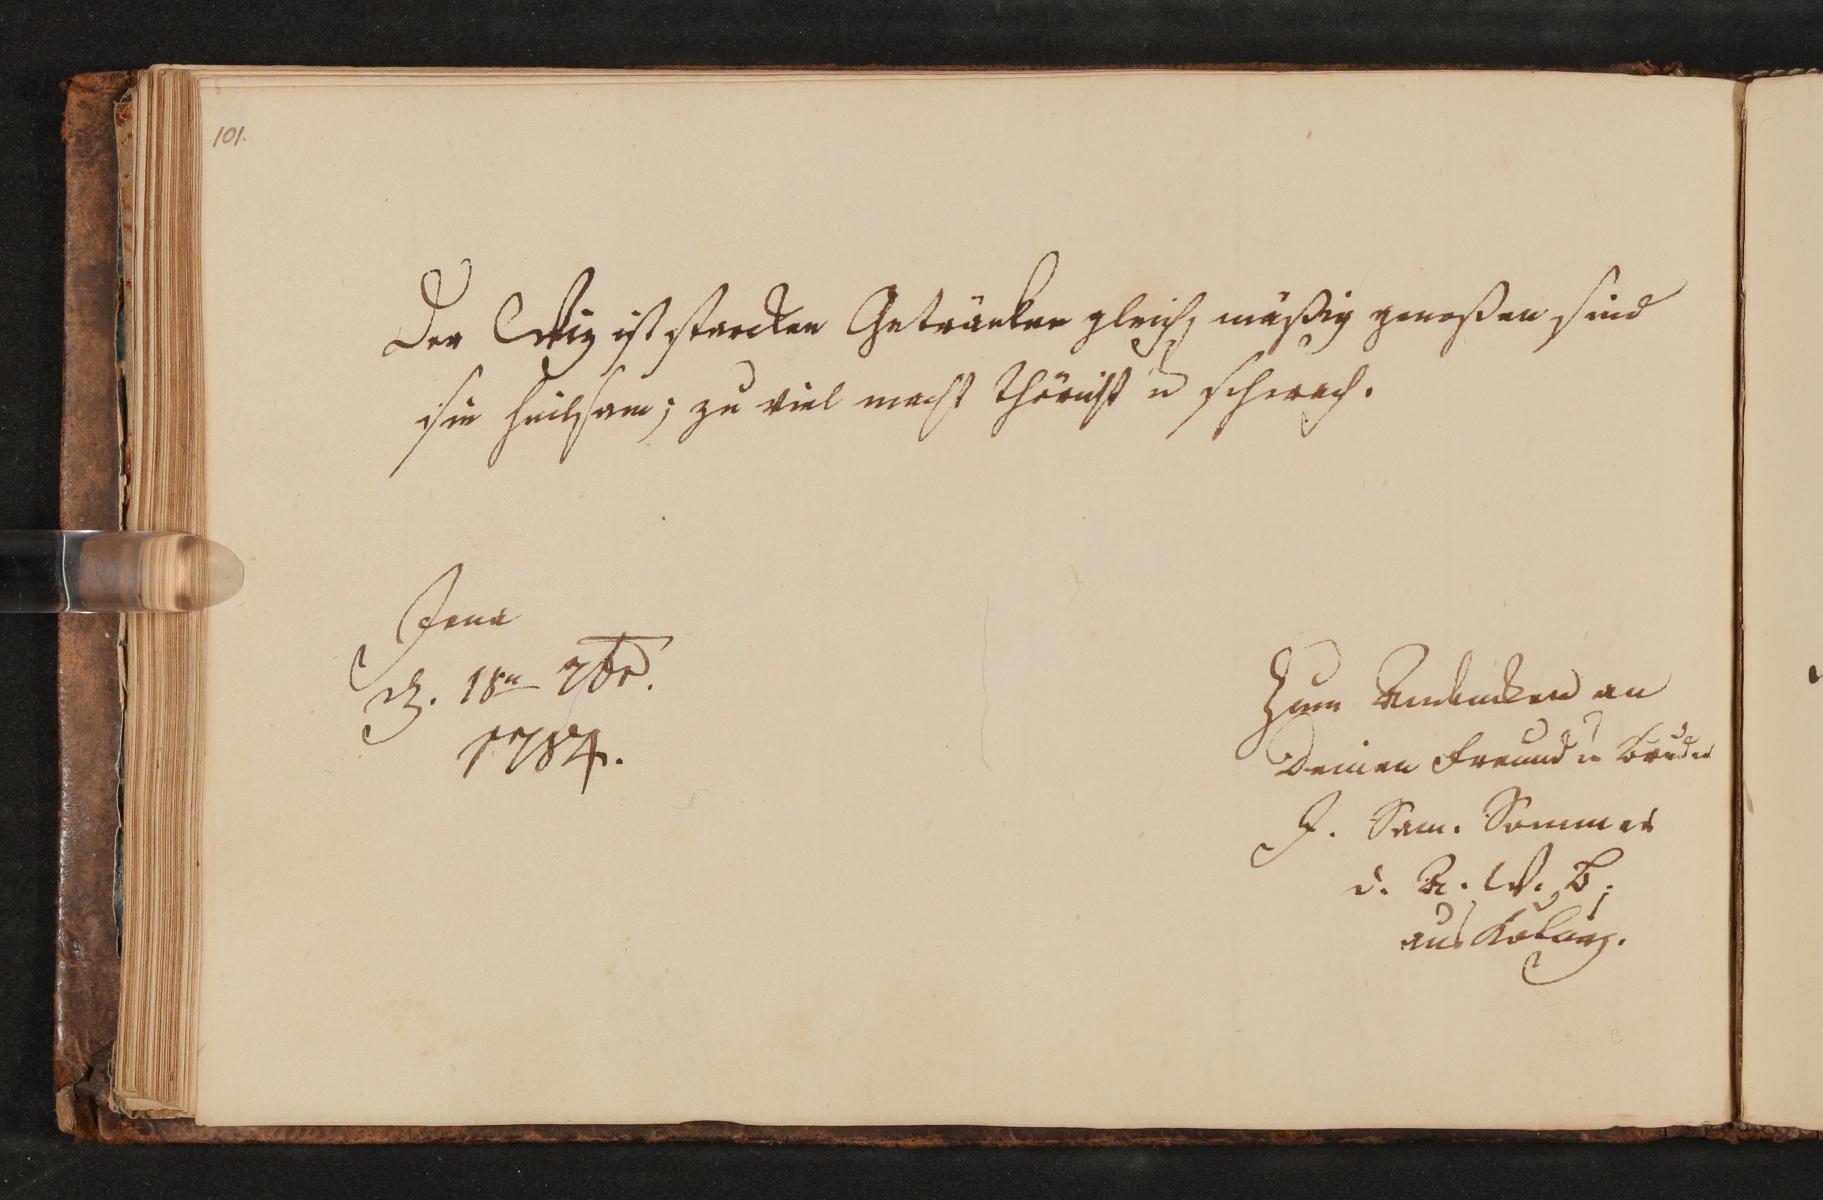 101.
Der Witz ist starcken Getränken gleich, mäßig genoßen sind
sie heilsam; zu viel macht thöricht u schwach.
Jena
d. 18n 7br.
1784.
Zum Andencken an
Deinen Freund u Bruder
J. Sam. Sommer
d. R. W. B.
aus Coburg.